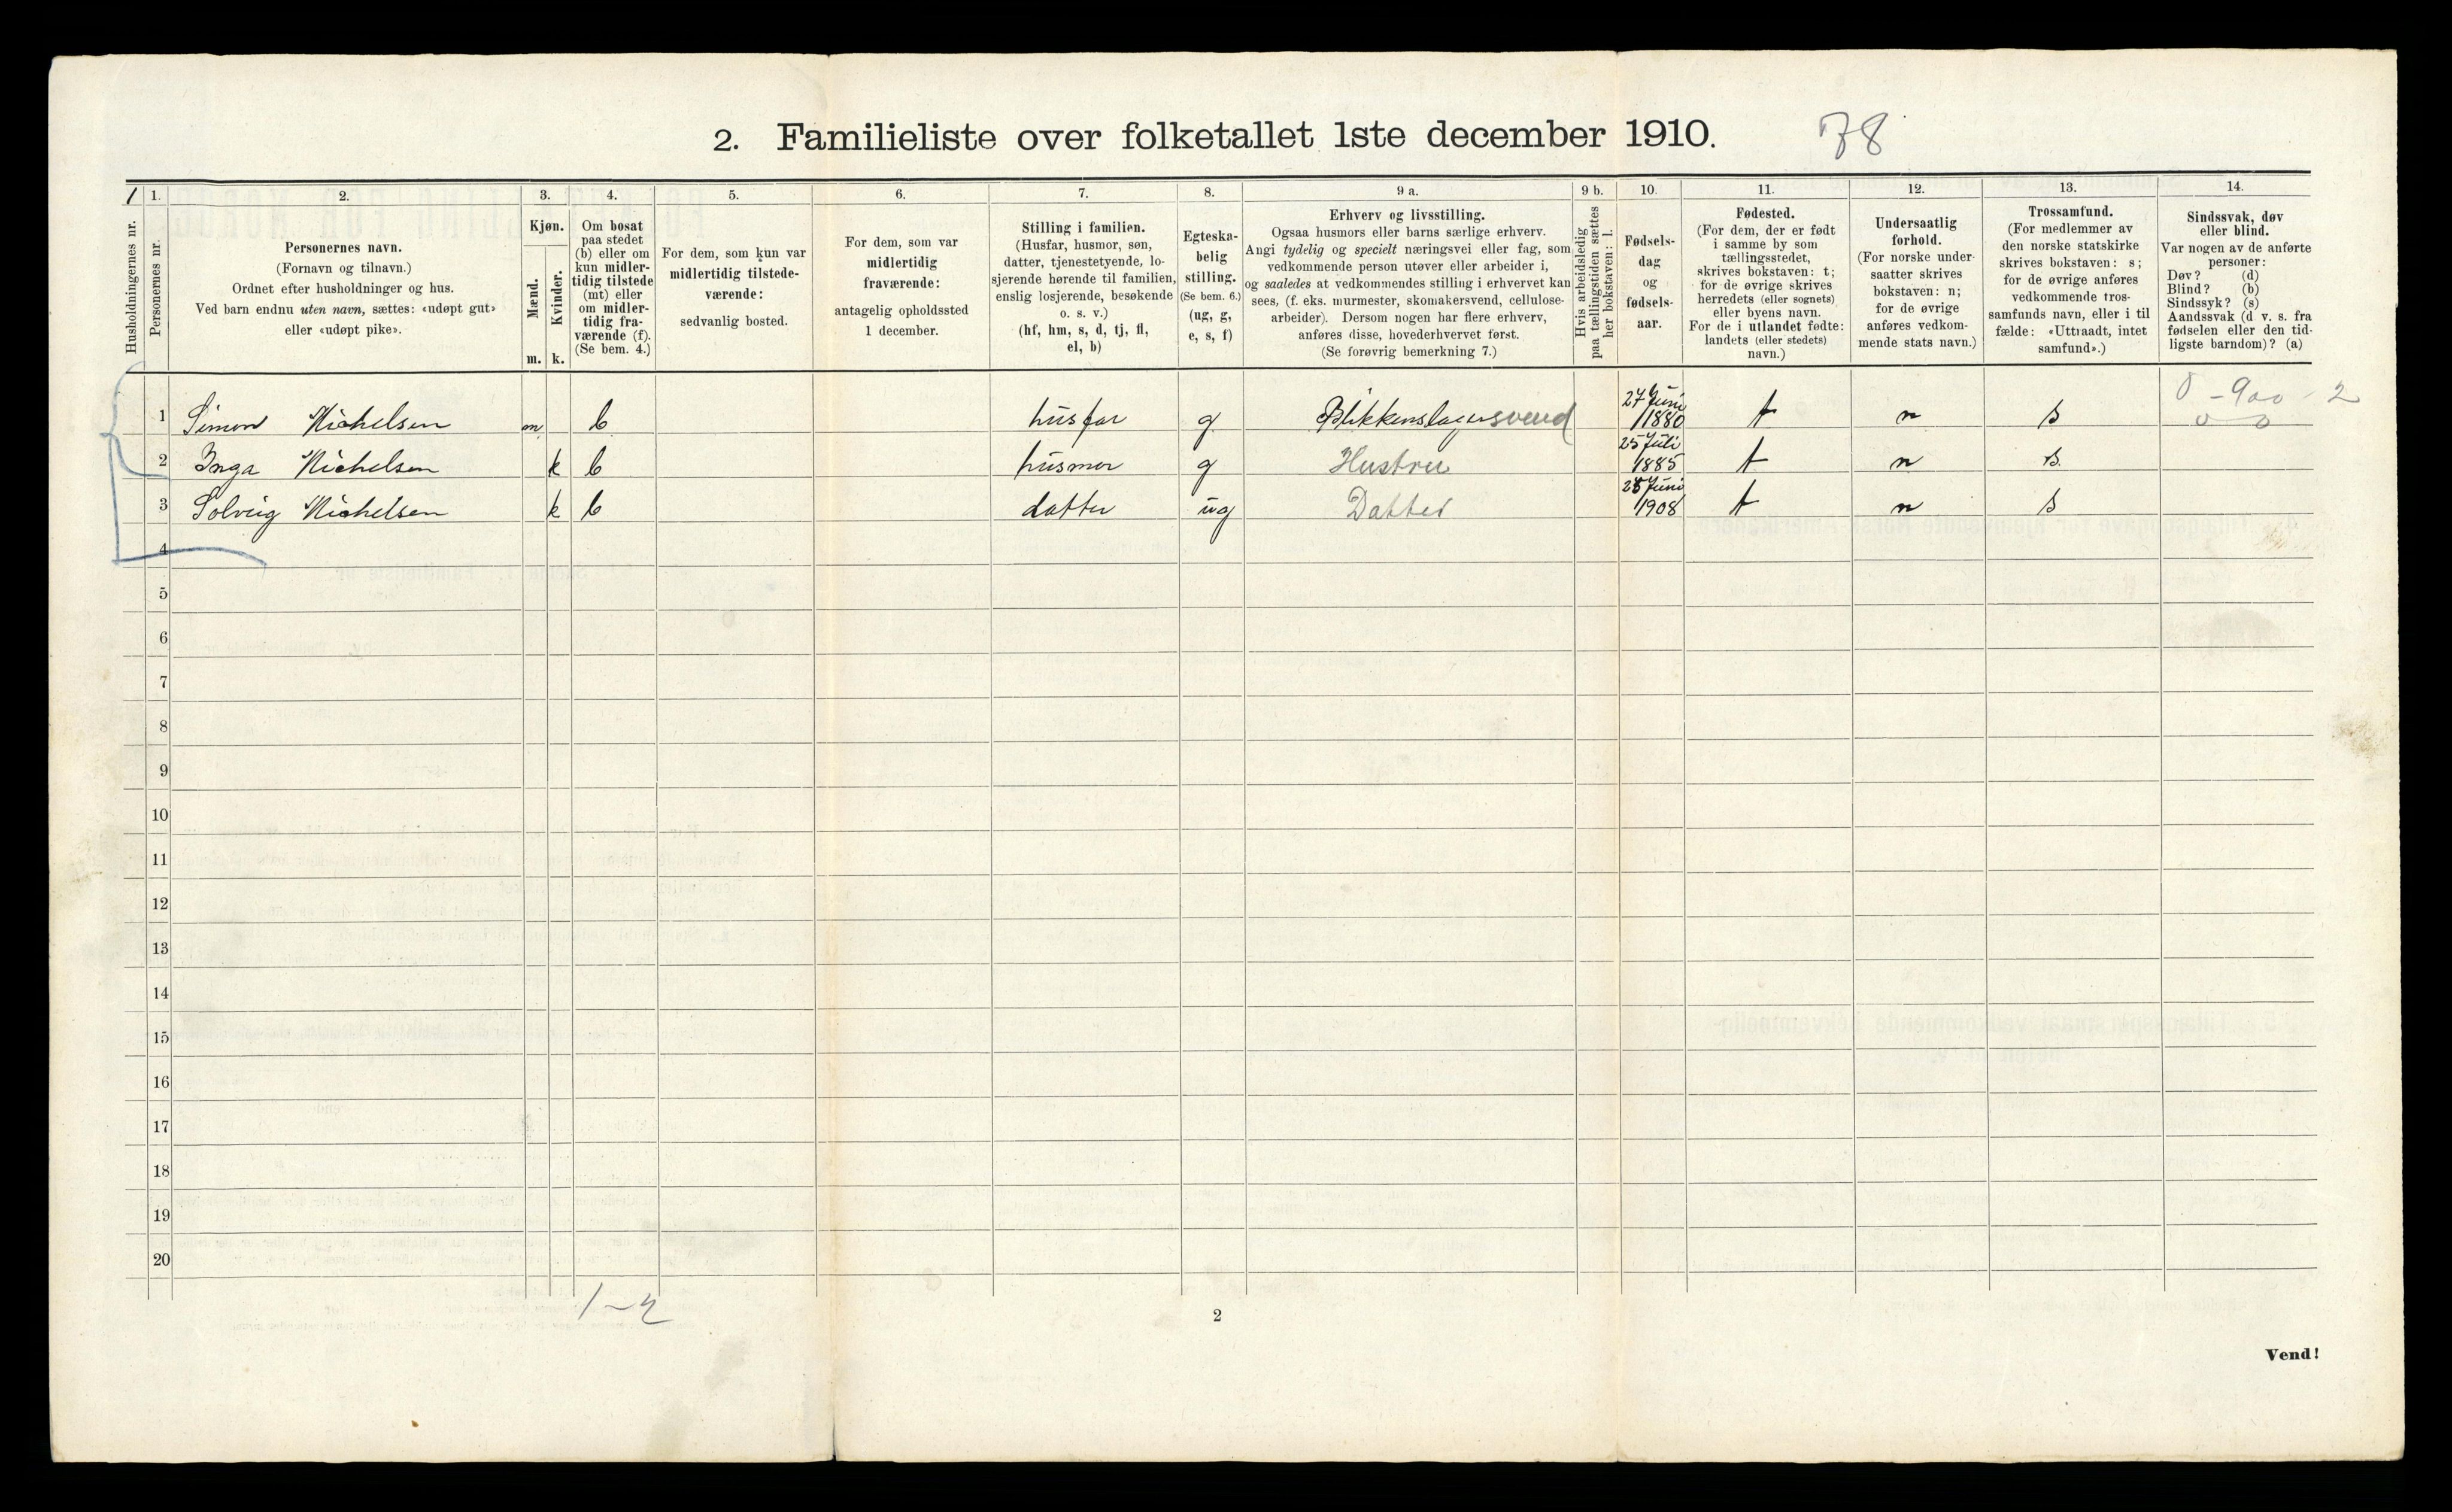 2. Familieliste over folketallet 1ste december 1910.
78
1
Husholdningernes nr.
1.
Personernes nr.
2.
Personernes navn.
(Fornavn og tilnavn.)
Ordnet efter husholdninger og hus.
Ved barn endnu uten navn, sættes: «udøpt gut»
eller «udøpt pike».
3.
Kjøn.
Mænd.
m.
Kvinder.
k.
4.
Om bosat
paa stedet
(b) eller om
kun midler-
tidig tilstede
(mt) eller
om midler-
tidig fra-
værende (f).
(Se bem. 4.)
5.
For dem, som kun var
midlertidig tilstede-
værende:
sedvanlig bosted.
6.
For dem, som var
midlertidig
fraværende:
antagelig opholdssted
1 december.
7.
Stilling i familien.
(Husfar, husmor, søn,
datter, tjenestetyende, lo-
sjerende hørende til familien,
enslig losjerende, besøkende
o. s. v.)
(hf, hm, s, d, tj, fl,
el, b)
8.
Egteska-
belig
stilling.
(Se bem. 6.)
(ug, g,
e, s, f)
9 a.
Erhverv og livsstilling.
Ogsaa husmors eller barns særlige erhverv.
Angi tydelig og specielt næringsvei eller fag, som
vedkommende person utøver eller arbeider i,
og saaledes at vedkommendes stilling i erhvervet kan
sees, (f. eks. murmester, skomakersvend, cellulose-
arbeider). Dersom nogen har flere erhverv,
anføres disse, hovederhvervet først.
(Se forøvrig bemerkning 7.)
9 b.
Hvis arbeidsledig
paa tællingstiden sættes
her bokstaven: l.
10.
Fødsels-
dag
og
fødsels-
aar.
11.
Fødested.
(For dem, der er født
i samme by som
tællingsstedet,
skrives bokstaven: t;
for de øvrige skrives
herredets (eller sognets)
eller byens navn.
For de i utlandet fødte:
landets (eller stedets)
navn.)
12.
Undersaatlig
forhold.
(For norske under-
saatter skrives
bokstaven: n;
for de øvrige
anføres vedkom-
mende stats navn.)
13.
Trossamfund.
(For medlemmer av
den norske statskirke
skrives bokstaven: s;
for de øvrige anføres
vedkommende tros-
samfunds navn, eller i til
fælde: «Uttraadt, intet
samfund».)
14.
Sindssvak, døv
eller blind.
Var nogen av de anførte
personer:
Døv? (d)
Blind? (b)
Sindssyk? (s)
Aandssvak (d v. s. fra
fødselen eller den tid-
ligste barndom)? (a)
1 Simon Michelsen m b husfar g Blikkenslagersvend 27 Juni 1880 t n s 0 - 900 - 2
0 0
2 Inga Michelsen k b husmor g Hustru 25 Juli 1885 t n s.
3 Solveig Michelsen k b datter ug Datter 25 Juni 1908 t n s
4
5
6
7
8
9
10
11
12
13
14
15
16
17
18
19
20
1-2
2
Vend!